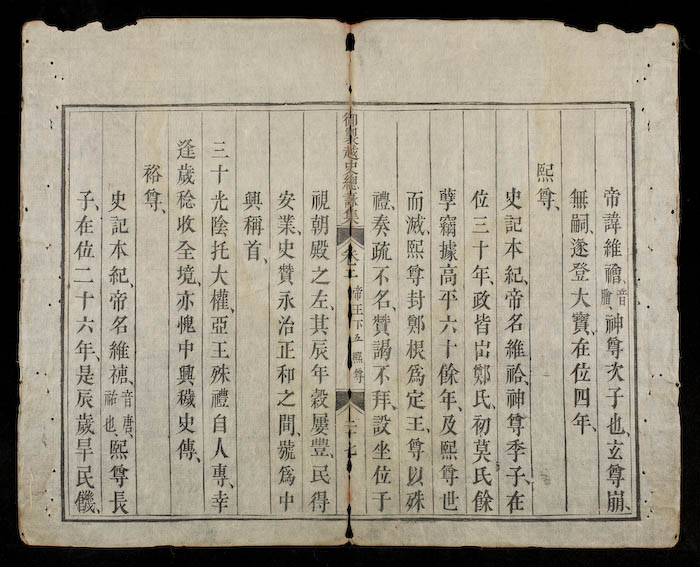 帝諱維禬、音膾神尊次子也、玄尊崩、
無嗣、遂登大寶、在位四年、
熙尊、
史記本紀、帝名維祫、神尊季子、在
位三十年、政皆出鄭氏、初莫氏餘
孽竊據高平六十餘年、及熙尊世
而滅、熙尊封鄭根為定王、尊以殊
禮、奏疏不名、贊謁不拜、設坐位于
御製越史總詠集 卷二 帝王下五 熙尊 二十七
視朝殿之左、其辰年穀屢豐、民得
安業、史贊永治正和之間、號為中
興稱首、
三十光陰托大權、亞王殊禮自人專、幸
逢歲稔收全境、亦愧中興穢史傳、
裕尊、
史記本紀、帝名維禟、音唐祐也、熙尊長
子、在位二十六年、是辰歲旱民饑、